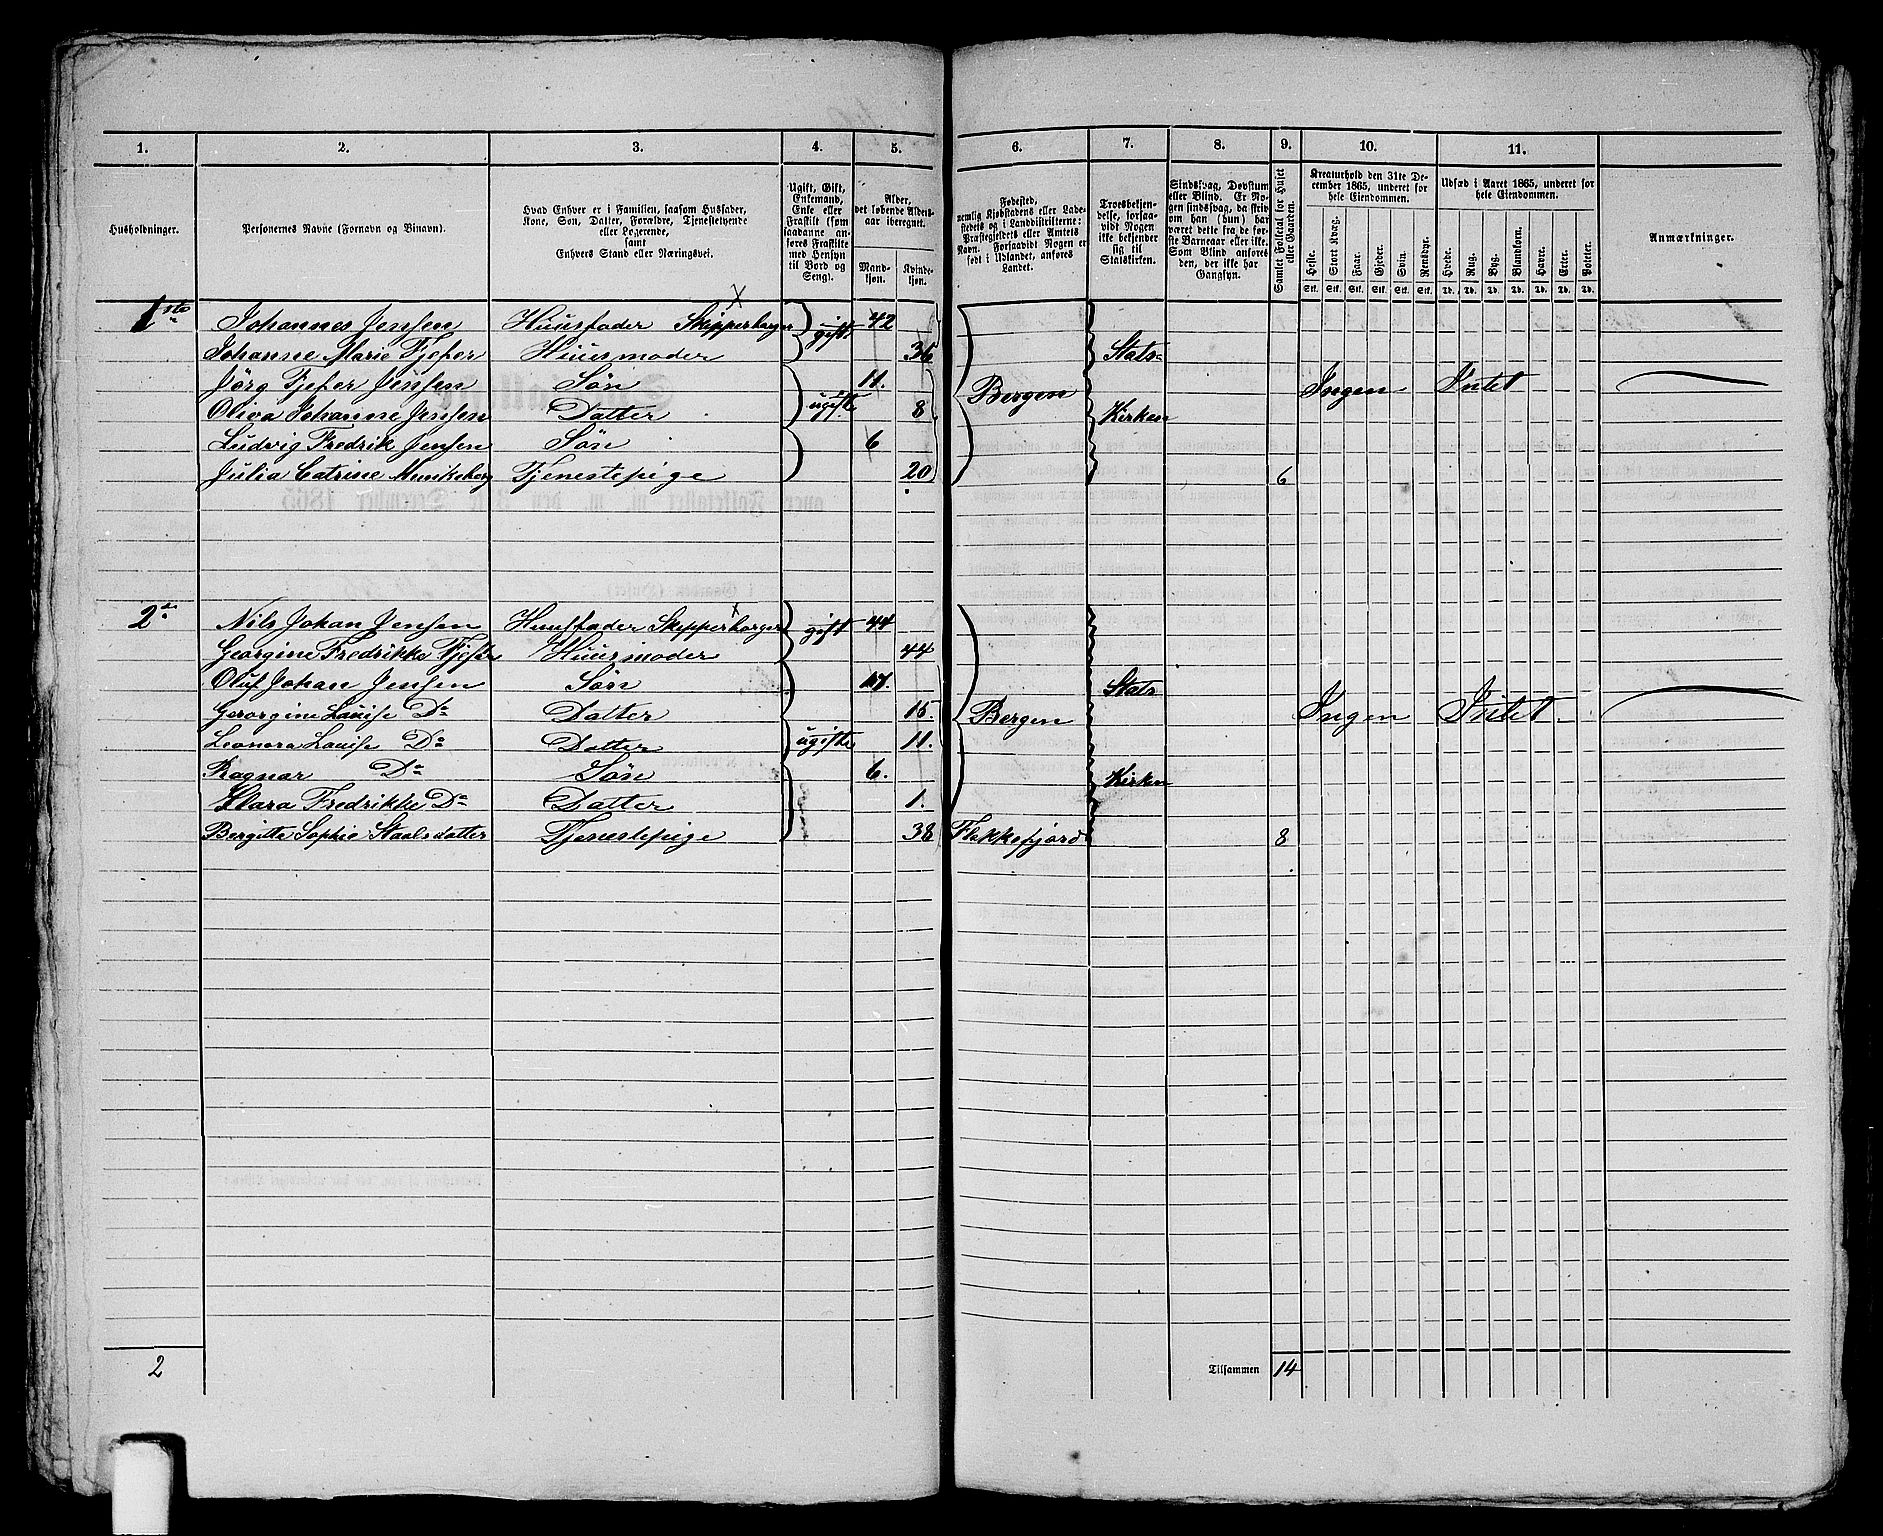 1. 2. 3. 4. 5. 6. 7. 8. 9. 10. 11.
Husholdninger.
Personernes Navne (Fornavn og Binavn).
Hvad Enhver er i Familien, saasom Husfader,
Kone, Søn, Datter, Forældre, Tjenestetyende
eller Logerende,
samt
Enhvers Stand eller Næringsvei.
Ugift, Gift,
Enkemand,
Enke eller
Fraskilt (som
saadanne an-
føres Fraskilte
med Hensyn
til Bord og
Seng).
Alder,
det løbende Alders-
aar iberegnet.
Mand-
kjøn.
Kvinde-
kjøn.
Fødested,
nemlig Kjøbstadens eller Lade-
stedets og i Landdistrikterne:
Præstegjeldets eller Amtets
Navn. Forsaavidt Nogen er
født i Udlandet, anføres
Landet.
Troesbekjen-
delse, forsaa-
vidt Nogen
ikke bekjender
sig til
Statskirken.
Sindssvag, Døvstum
eller Blind. Er No-
gen sindssvag, da skriv
om han (hun) har
været dette fra de før-
ste Barneaar eller ikke.
Som Blind anføres
den, der ikke har
Gangsyn.
Samlet Folketal for Huset
eller Gaarden.
Kreaturhold den 31te De-
cember 1865, underet for
hele Eiendommen.
Heste. Stort Kvæg. Faar. Gjeder. Svin. Rensdyr.
Stk. Stk. Stk. Stk. Stk. Stk.
Udsæd i Aaret 1865, underet for
hele Eiendommen.
Hvede. Rug. Byg. Blandkorn. Havre. Erter. Poteter.
Td. Td. Td. Td. Td. Td. Td.
Anmærkninger.
1ste Johannes Jensen Huusfader Skipperborger gift 42
Johanne Marie Fjeher Huusmoder 36 Stats-
Jörg Fjeher Jensen Sön 11. Bergen Ingen Intet
Oliva Johanne Jensen Datter ugifte 8 Kirken
Ludvig Fredrik Jensen Sön 6
Julia Catrine Munkeberg Tjenestepige 20 6
2den Nils Johan Jensen Huusfader Skipperborger gift 44
Georgine Fredrikke Huusmoder 44
Oluf Johan Jensen Sön 17. Stats
Gerorgine Louise Do Datter 15. Bergen Ingen Intet
Leonora Louise Do Datter ugifte 11.
Ragnar Do Sön 6. Kirken
Klara Fredrikke Do Datter 1.
Bergitte Sophie Staalsdatter Tjenestepige 38 Flekkefjord 8
2 Tilsammen 14